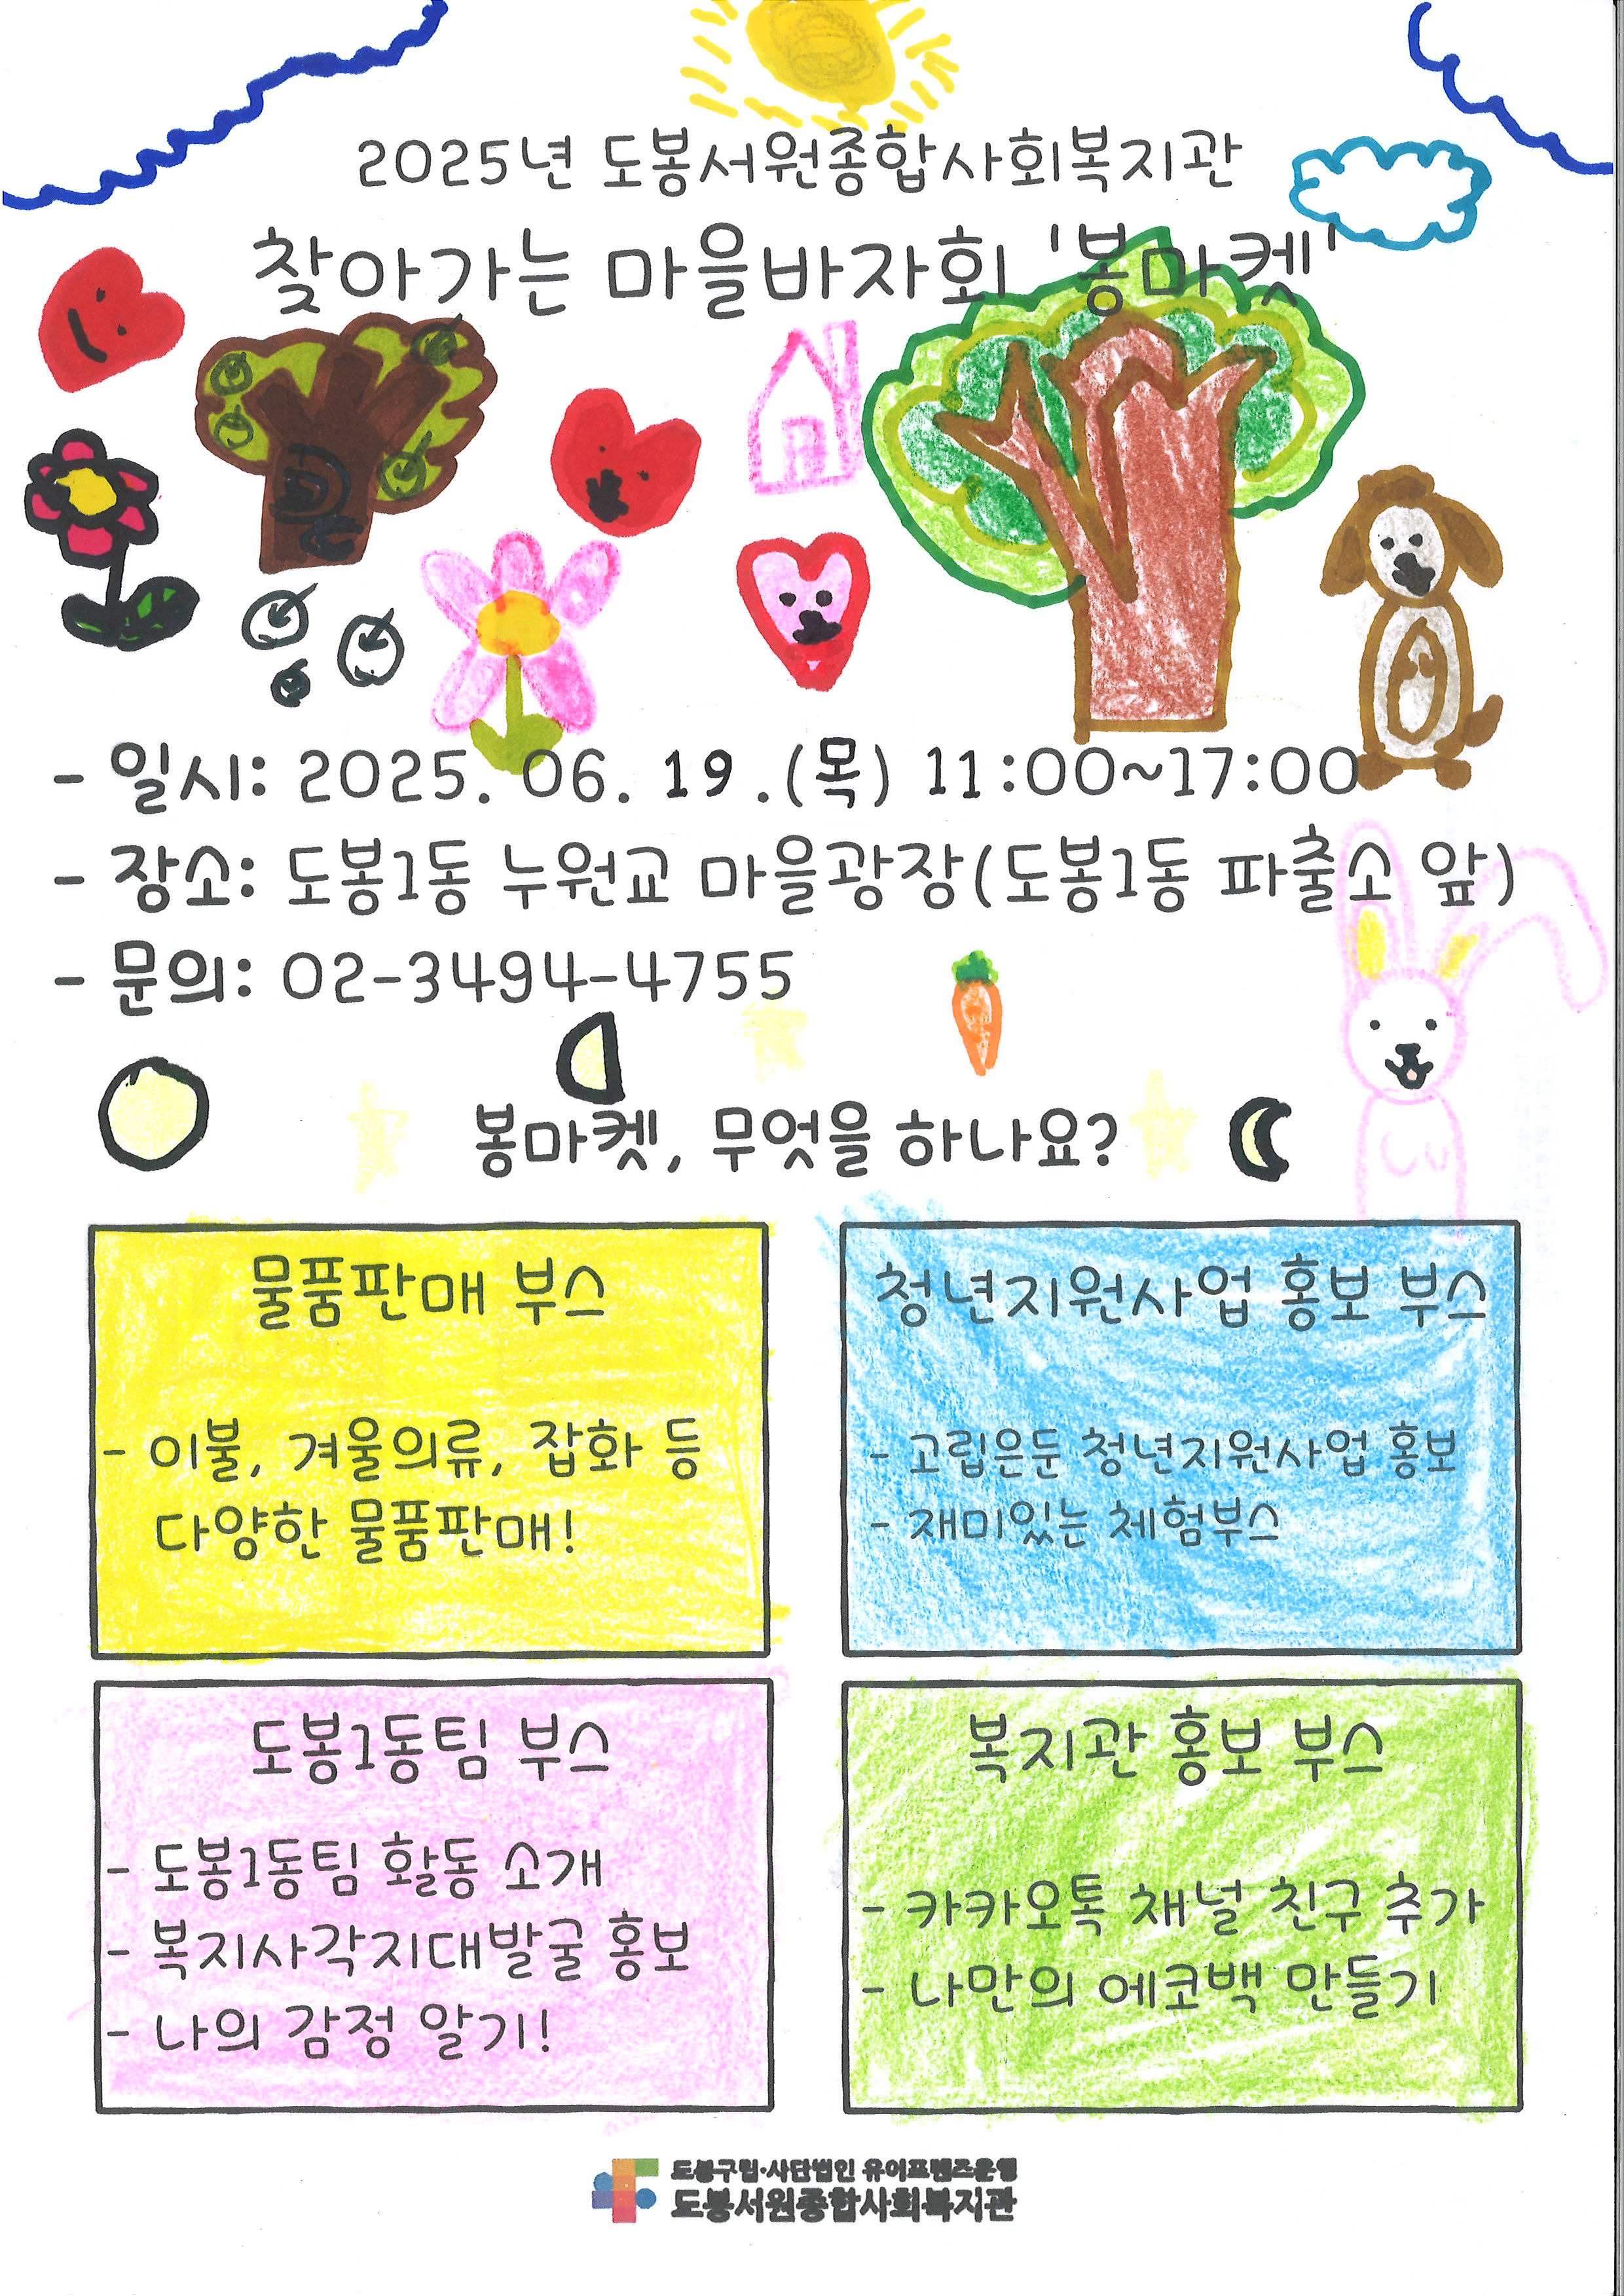 2025년 도봉서원종합사회복지관
찾아가는 마을바자회 '봉마켓'
- 일시: 2025. 06. 19 .(목) 11:00~17:00
- 장소: 도봉1동 누원교 마을광장(도봉1동 파출소 앞)
- 문의: 02-3494-4755
봉마켓, 무엇을 하나요?
물품판매 부스
- 이불, 겨울의류, 잡화 등
다양한 물품판매!
청년지원사업 홍보 부스
- 고립은둔 청년지원사업 홍보
- 재미있는 체험부스
도봉1동팀 부스
- 도봉1동팀 활동 소개
- 복지사각지대발굴 홍보
- 나의 감정 알기!
복지관 홍보 부스
- 카카오톡 채널 친구 추가
- 나만의 에코백 만들기
도봉구립·사단법인 유이프렌즈운영
도봉서원종합사회복지관